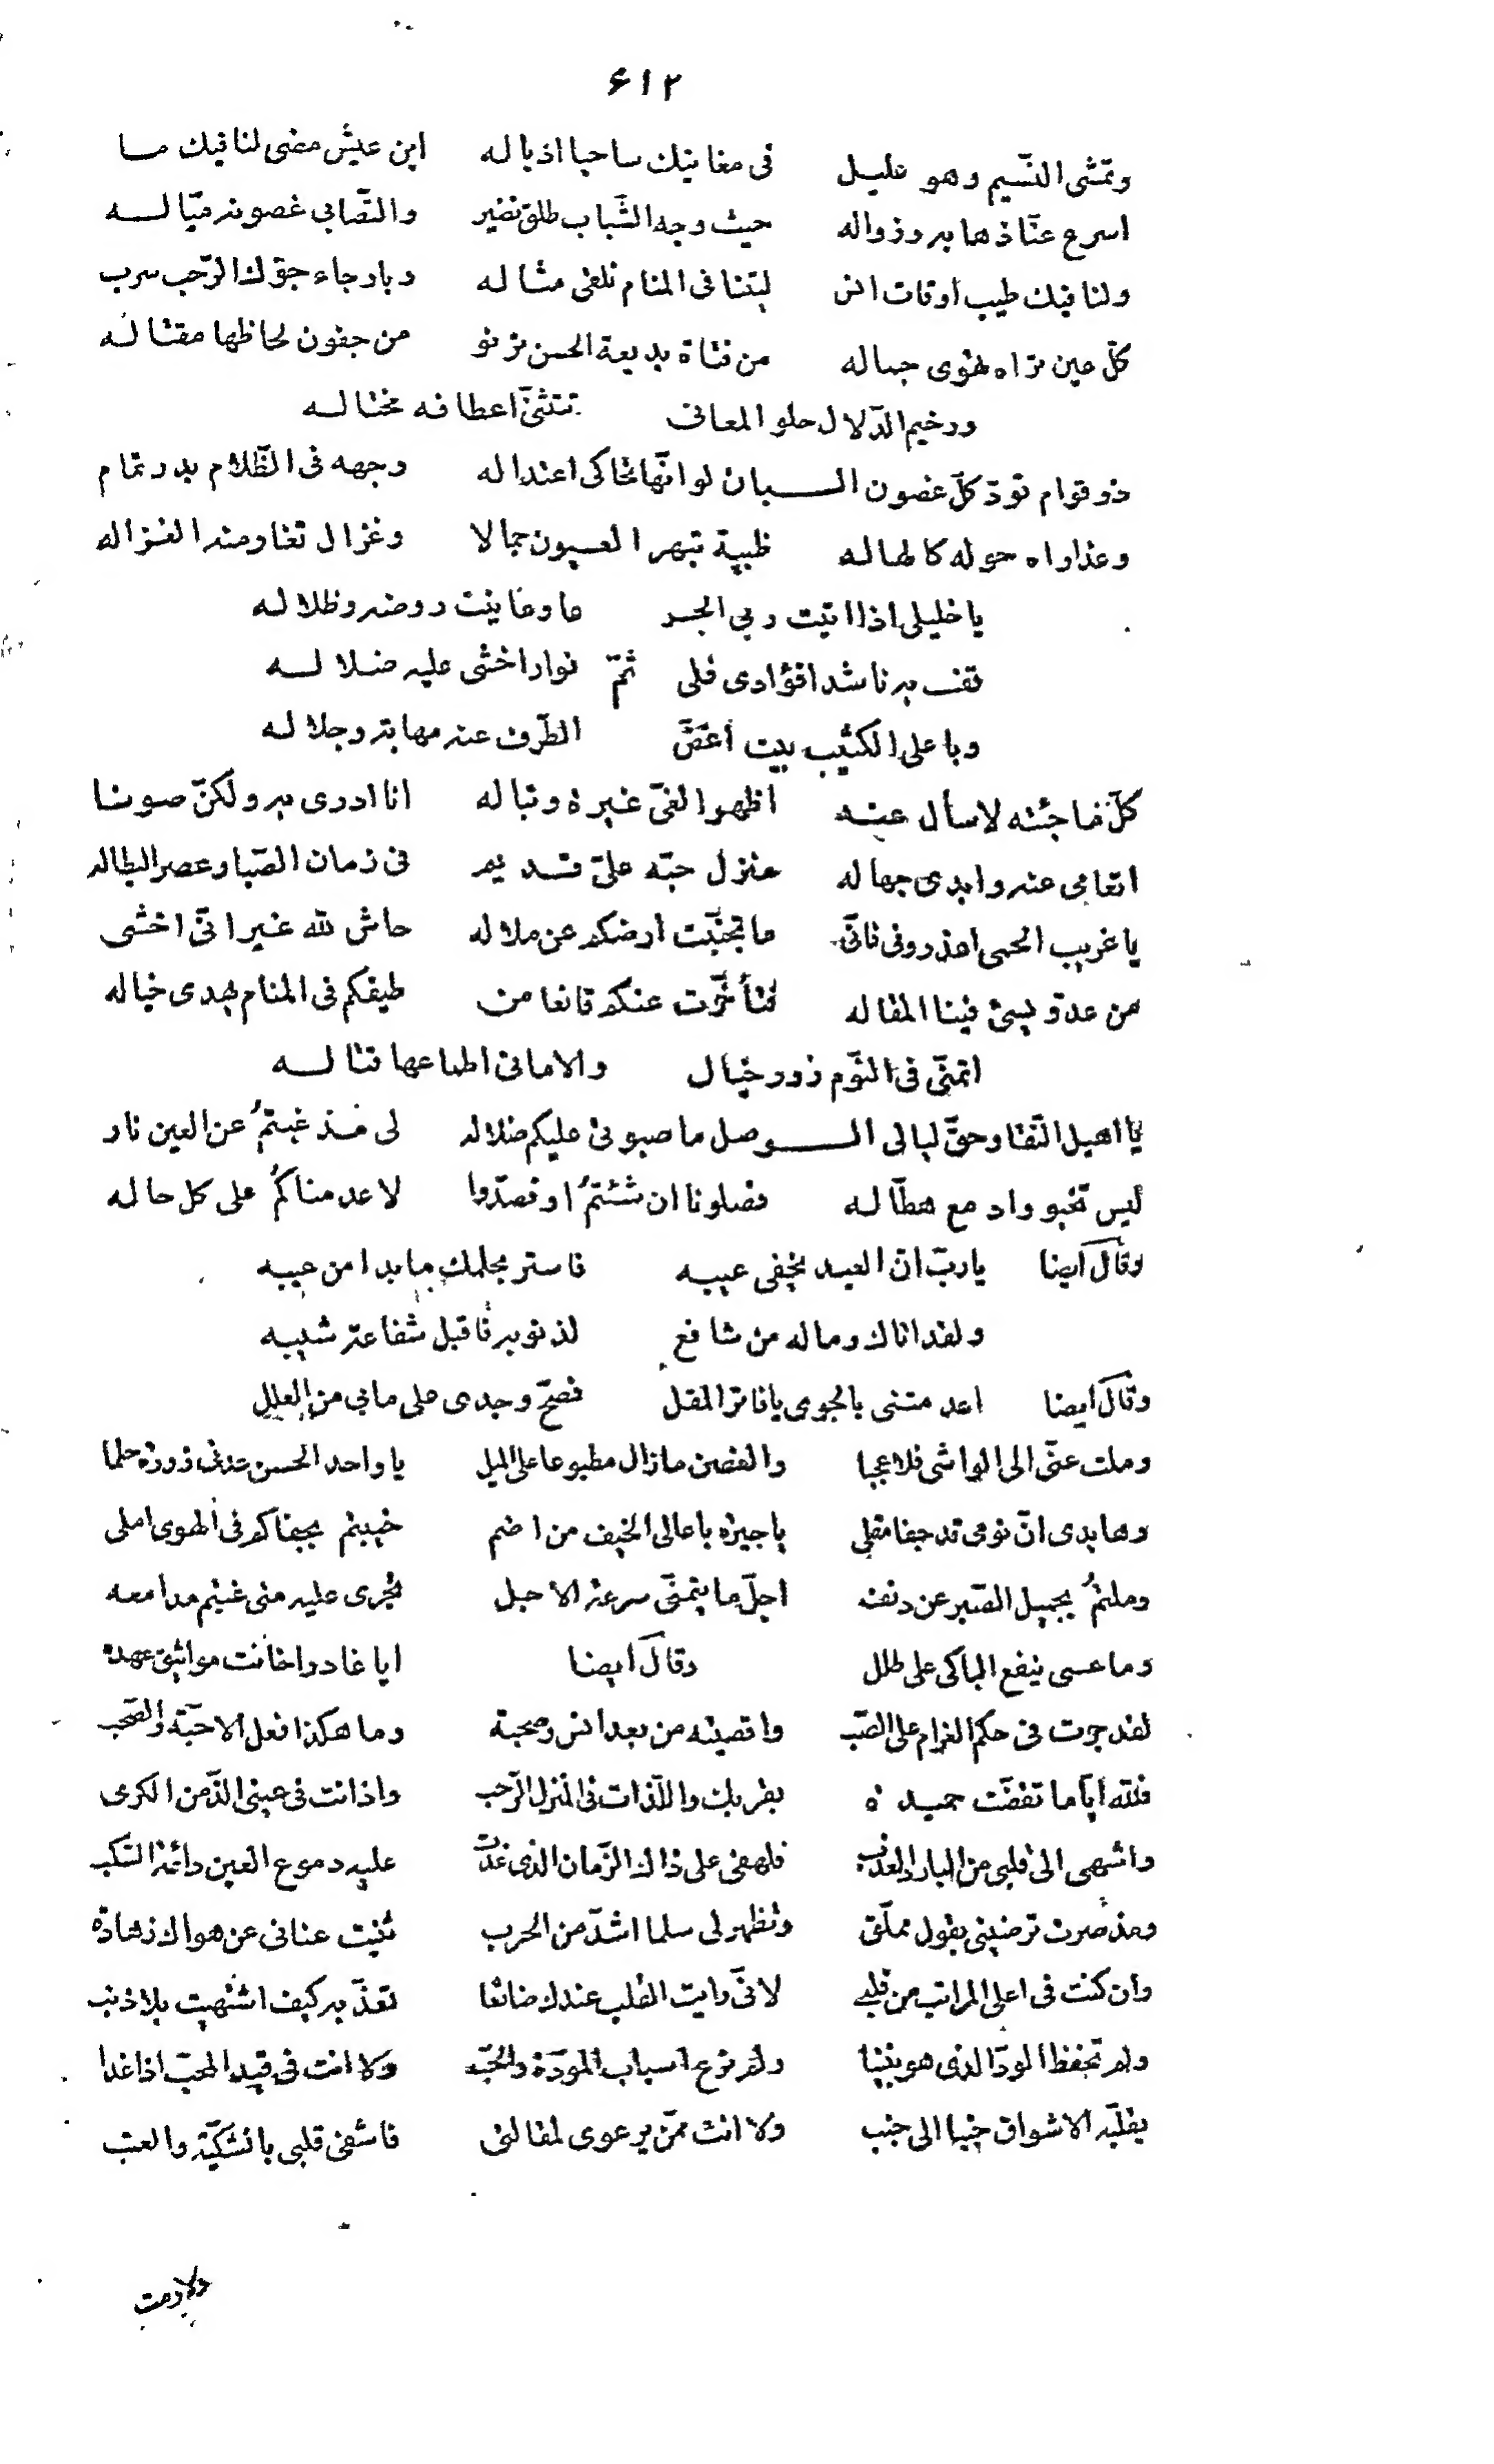 ٦١٢
وتمشى النّسيم وهو عليل   فى مغانيك ساحبا اذياله   اين عيش مضى لنا فيك ما
اسرع عنّا ذهابه وزواله   حيث وجه الشّباب طلق نضير   والتّصابى غصونه ميّاله
ولنا فيك طيب اوقات انس   ليتنا فى المنام نلقى مثاله   وبارجاء جوّك الرّحب سرب
كلّ عين تراه تهوى جماله   من فتاة بديعة الحسن ترنو   من جفون لحاظها مقتاله
ورخيم الدّلال حلو المعانى   تتثنّى اعطافه مختاله
ذو قوام تودّ كلّ غصون البان لو انّها تحاكى اعتداله   وجهه فى الظّلام بدر تمام
وعذاراه حوله كالهاله   ظبية تبهر العيون جمالا   وغزال تغار منه الغزاله
يا خليلى اذا اتيت ربى الجزع   وعاينت روضه وظلاله
قف به ناشدا فؤادى فلى   ثمّ فؤاد اخشى عليه ضلاله
وباعلى الكثيب بيت اغضّ   الطّرف عنه مهابة وجلاله
كلّ ما جئته لاسأل عنه   اظهر الغىّ غيرة وتباله   انا ادرى به ولكنّ صونا
اتعامى عنه وابدى جهاله   منزل حبّه علىّ قديم   فى زمان الصّبا وعصر البطاله
يا عريب الحمى اعذرونى فانّى   ما تجنّبت ارضكم عن ملاله   حاش لله غير انّى اخشى
من عدوّ يسئ فينا المقاله   فتأخّرت عنكم قانعا من   طيفكم فى المنام يهدى خياله
اتمنّى فى النّوم زور خيال   والامانى اطماعها قتاله
يا اهيل النّقا وحقّ ليالى الوصل ما صبوتى عليكم ضلاله   لى مذ غبتمُ عن العين نار
ليس تخبو وادمع هطّاله   فصلونا ان شئتمُ او فصدّوا   لا عدمناكمُ على كل حاله
وقال ايضا   يا ربّ ان العبد يخفى عيبه   فاستر بحلمك ما بدا من عيبه
ولقد اتاك وماله من شافع   لذنوبه فاقبل شفاعة شيبه
وقال ايضا   اعدمتنى بالجوى يا فاتر المقل   فصحّ وجدى على مابى من العلل
وملت عنّى الى الواشى فلا عجبا   والغصن مازال مطبوعا على الميل   يا واحد الحسن عدنى زورة حلما
وها يدى انّ نومى قد جفا مقلى   يا جيرة باعالى الخيف من اضم   خيبتم بجفاكم فى الهوى املى
وملتمُ بجميل الصّبر عن دنف   اجلّ ما يتمنّى سرعة الاجل   تجرى عليه متى غبتم مدامعه
وما عسى ينفع الباكى على طلل   وقال ايضا   ايا غادرا خانت مواثيق عهده
لقد جرت فى حكم الغرام على الصّب   واقصيته من بعد انس وصحبة   وما هكذا فعل الاحبّة والصّحب
فلله ايّاما تقضّت حميدة   بقربك واللّذات فى المنزل الرّحب   واذ انت فى عينى الذّ من الكرى
واشهى الى قلبى من البارد العذب   فلهفى على ذاك الزّمان الذى غدت   عليه دموع العين دائمة السّكب
ومذ صرت ترضينى بقول مملّق   وتظهر لى سلما اشدّ من الحرب   ثنيت عنانى عن هواك زهادة
وان كنت فى اعلى المراتب من قلبى   لانّى رايت القلب عندك ضائعا   تعذّبه كيف اشتهيت بلا ذنب
ولم تحفظ الودّ الذى هو بيننا   ولم ترع اسباب المودّة والحبّ   ولا انت فى قيد المحبّ اذا غدا
يقلّبه الاشواق جنبا الى جنب   ولا انت ممّن يرعوى لمقالتى   فاشفى قلبى بالشكيّة والعتب
ولا رمت